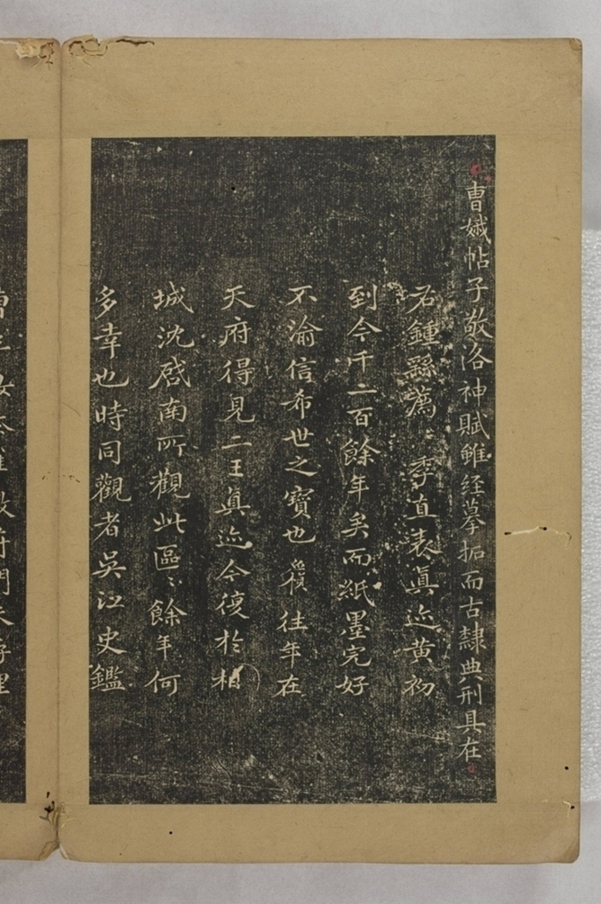 曹娥帖子敬洛神賦雖経摹拓而古隸典刑具在
右鍾繇薦季直表真迹黄初
到今千二百餘年矣而紙墨完好
不渝信希世之寶也 往年在
天府得見二王真迹今復於相
城沈啓南所觀此區〻餘年何
多幸也時同觀者吳江史鑑